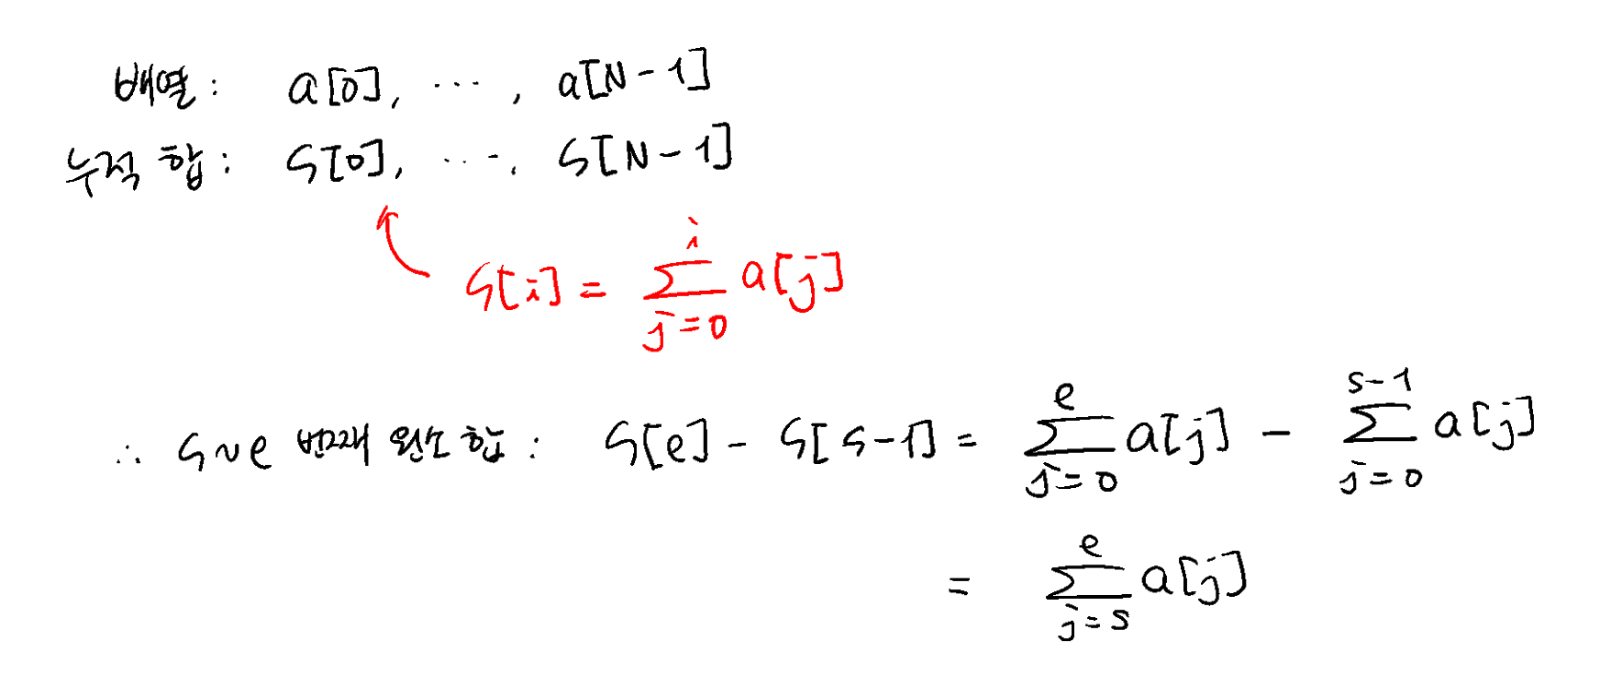 배열 : a[0], ⋯ , a[N-1]
누적 합 : S[0], ⋯, S[N-1]
S[i] = \sum_{j=0}^{i} a[j]
∴ S~e 번째 원소 합 : S[e] - S[s-1] = \sum_{j=0}^{e} a[j] - \sum_{j=0}^{s-1} a[j]
= \sum_{j=s}^{e} a[j]